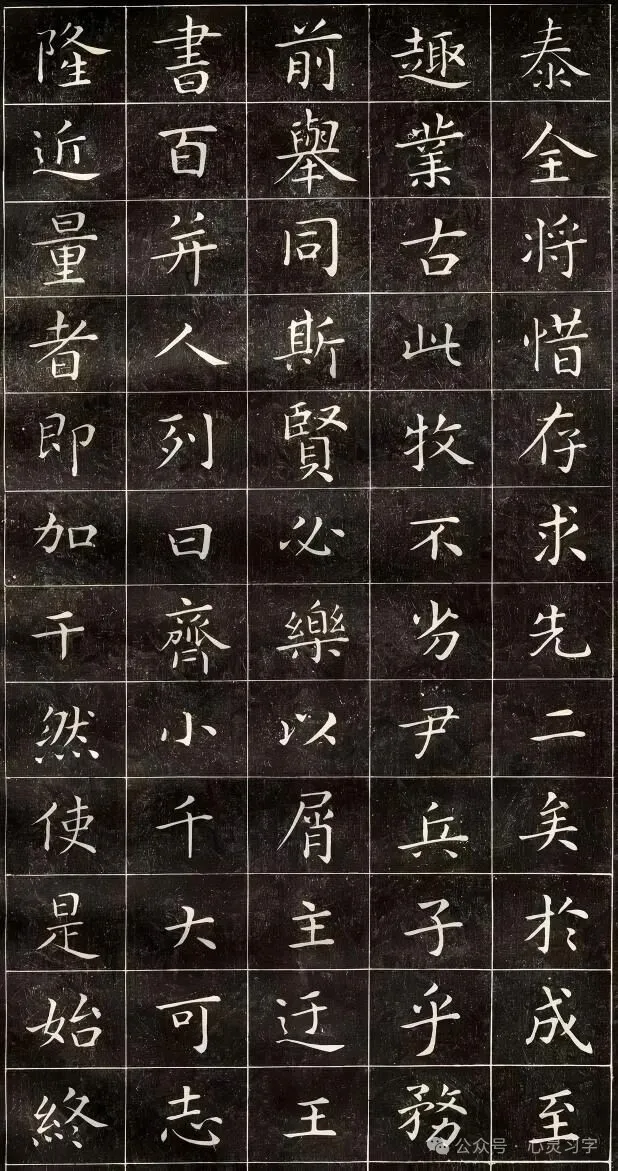 泰全将惜存求先二矣於成至
趣業古此牧不劣尹兵子乎務
前舉同斯賢必樂以屑主迂王
書百并人列曰齊小千大可志
隆近量者即加干然使是始終
公众号 · 心灵习字